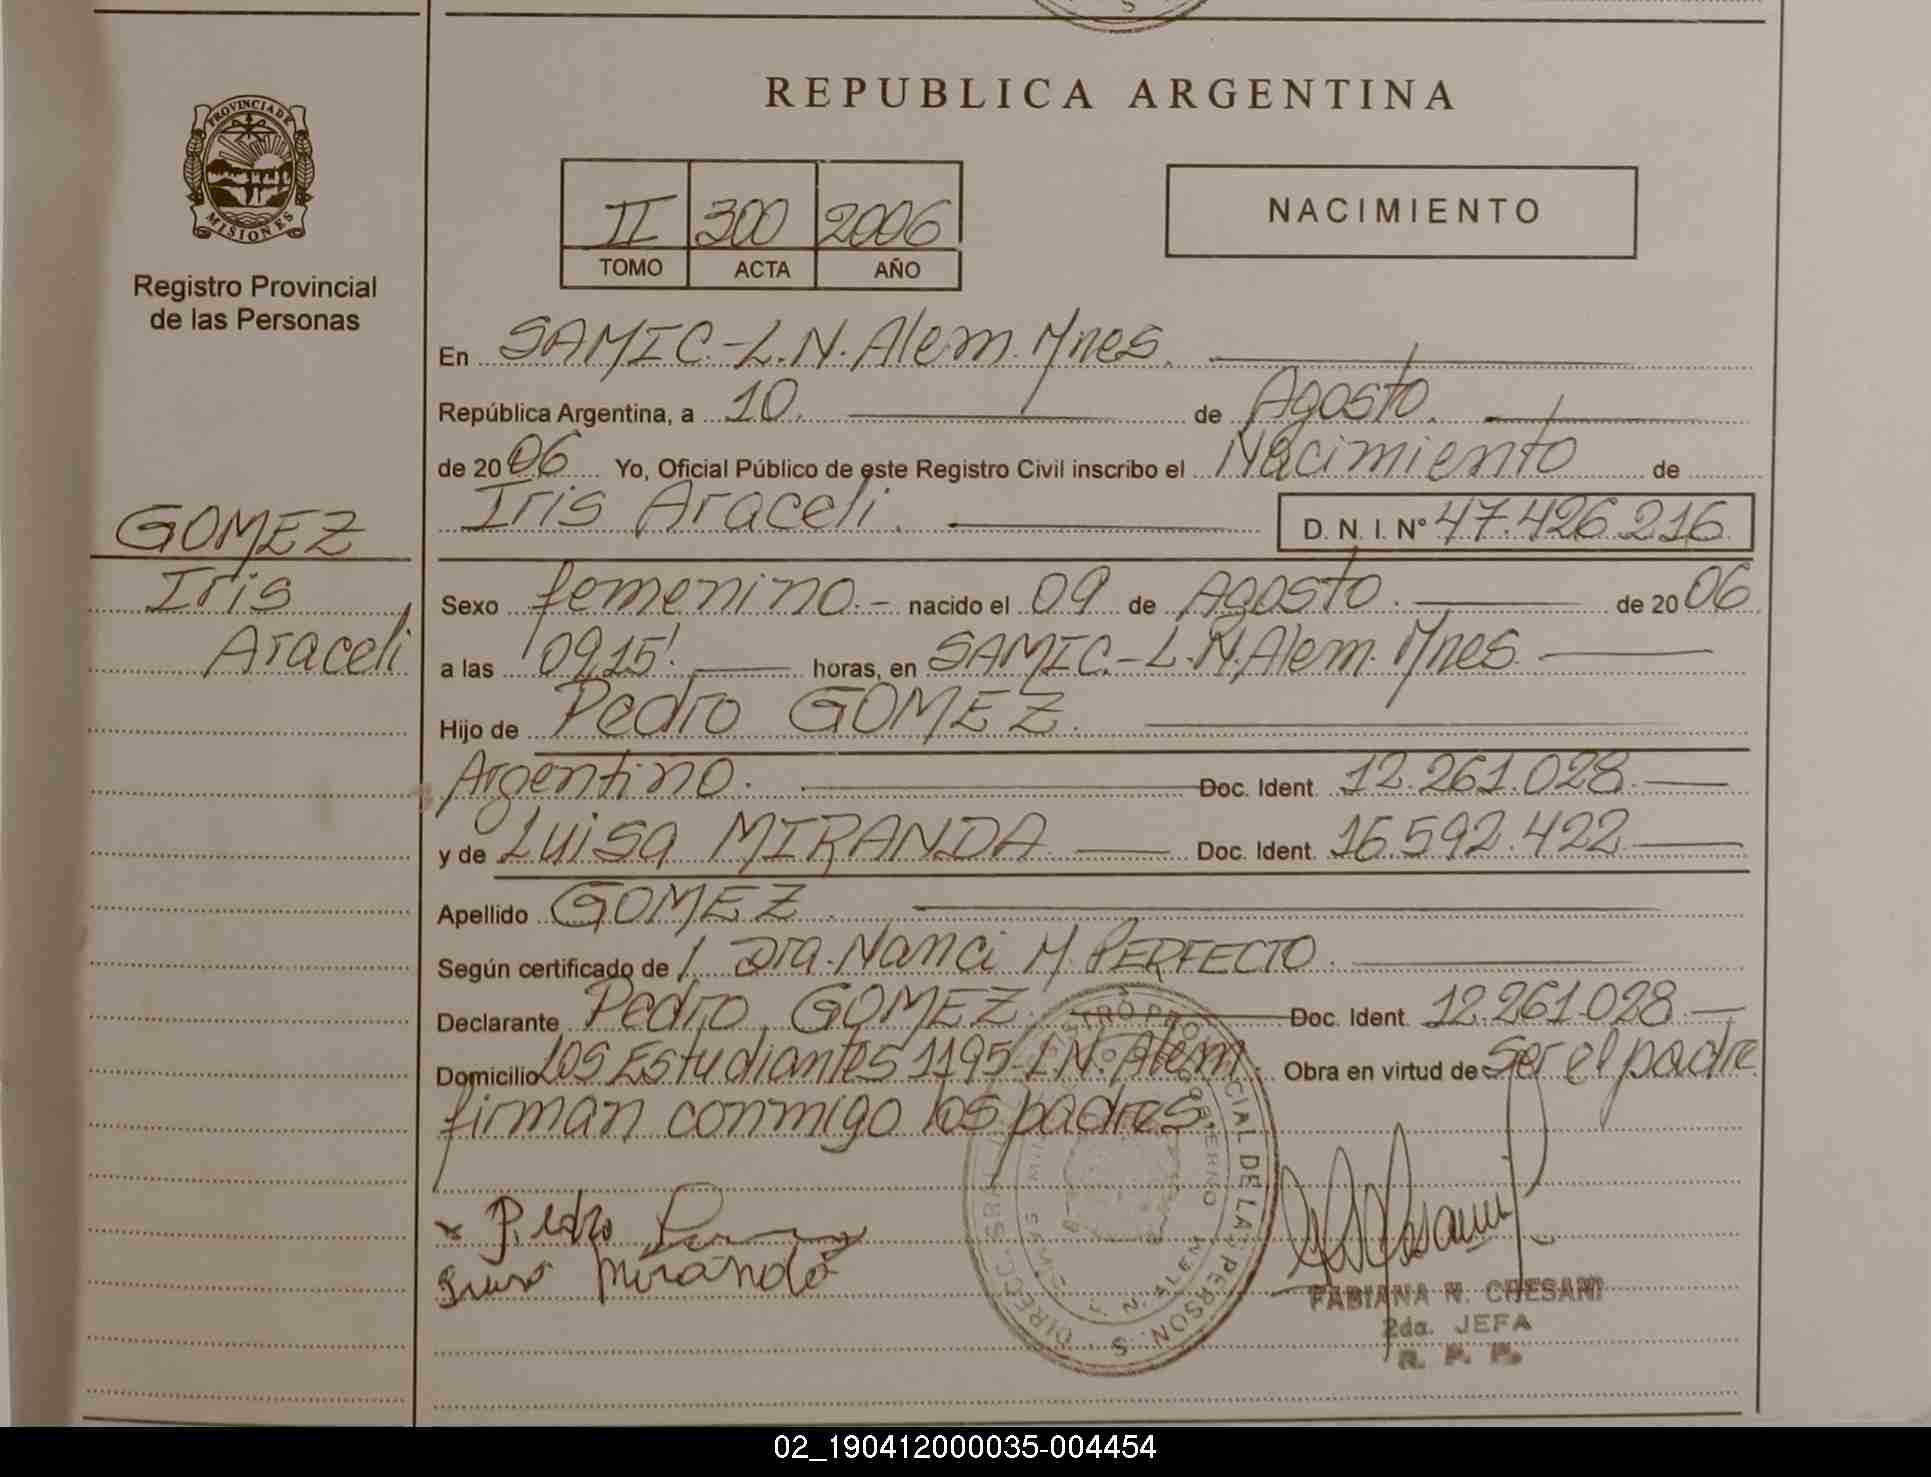 REPUBLICA ARGENTINA
PROVINCIA DE
MISIONES
Registro Provincial
de las Personas
II 300 2006
TOMO ACTA AÑO
NACIMIENTO
En SAMIC.-L.N.Alem.Mnes.
República Argentina, a 10. de Agosto.
de 2006 Yo, Oficial Público de este Registro Civil inscribo el Nacimiento de
Iris Araceli. D. N. I. Nº 47.426.216
GOMEZ
Iris
Araceli
Sexo femenino.- nacido el 09 de Agosto. de 2006
a las 09,15'. horas, en SAMIC.-L.N.Alem. Mnes.
Hijo de Pedro GOMEZ.
Argentino. Doc. Ident. 12.261.028
y de Luisa MIRANDA Doc. Ident. 16.592.422
Apellido GOMEZ.
Según certificado de / Dra. Nanci M. PERFECTO.
Declarante Pedro GOMEZ. Doc. Ident. 12.261.028
Domicilio Los Estudiantes 1195-L.N.Alem. Obra en virtud de Ser el padre
firman conmigo los padres.
Pedro
Miranda
L. N. ALEM
FABIANA N. CRESANI
2da. JEFA
R. P. P.
02_190412000035-004454